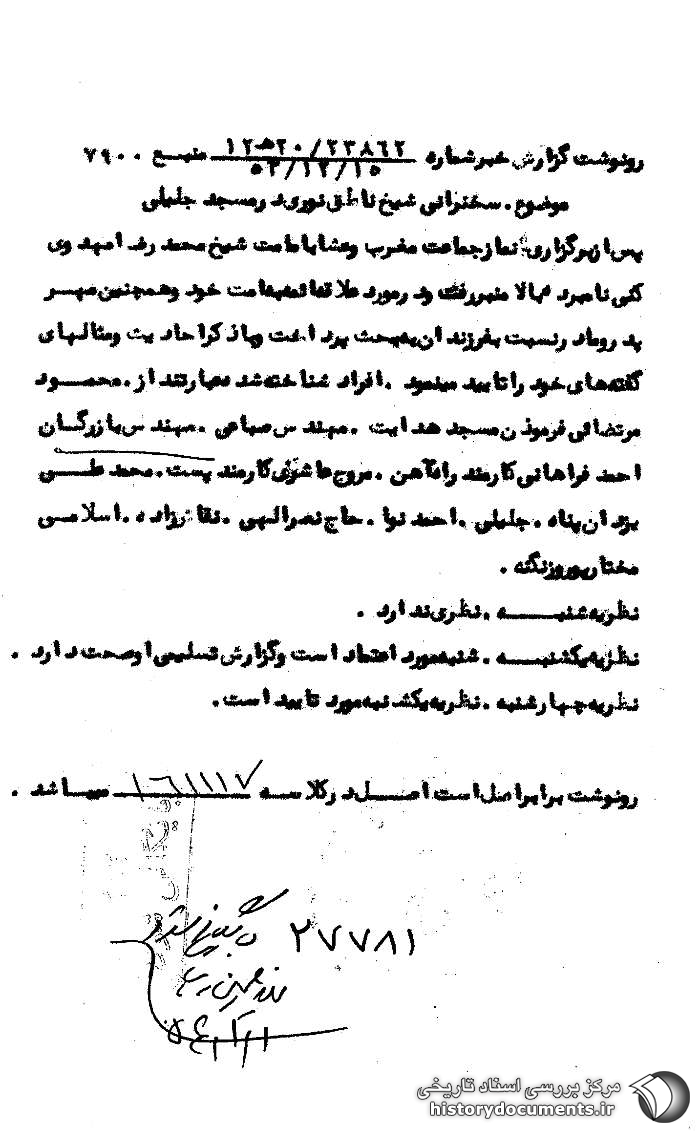 رونوشت گزارش خبر شماره ۲۳۸۶۲/ ۲۰ﻫ۱۲ منبع ۷۹۰۰
۵۳/۱۲/۱۵
موضوع . سخنرانی شیخ ناطق نوری در مسجد جلیلی
پس از برگزاری نماز جماعت مغرب و عشا با امامت شیخ محمد رضا مهدوی
کنی نامبرد بالا منبر رفت و در مورد علاقه ائمه به امت خود و همچنین مهر
پدر و مادر نسبت بفرزندان به بحث پرداخت و با ذکر احادیث و مثالهای
گفته های خود را تایید مینمود . افراد شناخته شده عبارتند از . محمود
مرتضائی فر موذن مسجد هدایت . مهندس صباغی . مهندس بازرگان
احمد فراهانی کارمند راه آهن . مروج عاشوری کارمند پست . محمد علی
یزدان پناه . جلیلی . احمد نوا . حاج نصرالهی . نقاش زاده . اسلامی
مختارپور وزنگنه .
نظریه شنبه . نظری ندارد .
نظریه یکشنبه . شنبه مورد اعتماد است و گزارش تسلیمی او صحت دارد .
نظریه چهارشنبه . نظریه یکشنبه مورد تایید است .
رونوشت برابر اصل است اصل در کلاسه ۱۶۱۱۱۷ میباشد .
۲۷۷۸۱
مرکز بررسی اسناد تاریخی
historydocuments.ir